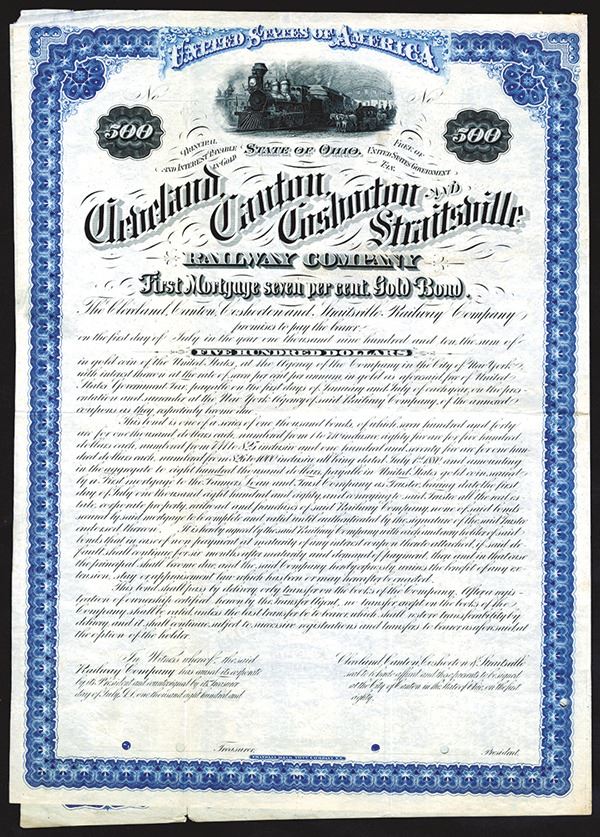 UNITED STATES OF AMERICA
No
No
500
500
PRINCIPAL
AND INTEREST PAYABLE
IN GOLD
STATE OF OHIO.
FREE OF
UNITED STATES GOVERNMENT
TAX.
Cleveland, Canton, Coshocton AND Straitsville
RAILWAY COMPANY
First Mortgage seven per cent. Gold Bond.
The Cleveland, Canton, Coshocton and Straitsville Railway Company
promises to pay the bearer
on the first day of July in the year one thousand nine hundred and ten the sum of
FIVE HUNDRED DOLLARS
in gold coin of the United States, at the Agency of the Company in the City of New York
with interest thereon at the rate of seven per cent per annum, in gold as aforesaid free of United
States Government Tax, payable on the first days of January and July of each year, on the presen
tation and surrender at the New York Agency of said Railway Company, of the annexed
coupons as they respectively become due.
This bond is one of a series of one thousand bonds, of which seven hundred and forty
are for one thousand dollars each, numbered from 1 to inclusive eighty five are for five hundred
dollars each, numbered from inclusive and one hundred and seventy five are for one hun
dred dollars each, numbered from inclusive all being dated July 1st 1880 and amounting
in the aggregate to eight hundred thousand dollars, payable in United States gold coin secured
by a First mortgage to the Farmers Loan and Trust Company as Trustee, bearing date the first
day of July one thousand eight hundred and eighty and conveying to said Trustee all the real es
tate, corporate property, railroad and franchises of said Railway Company, none of said bonds
secured by said mortgage to be complete and valid until authenticated by the signature of the said Trustee
endorsed thereon. It is hereby agreed by the said Railway Company with each and every holder of said
bonds that in case of non payment at maturity of any interest coupon thereto attached, if said de
fault shall continue for six months after maturity and demand of payment, then and in that case
the principal shall become due, and the said Company hereby expressly waives the benefit of any ex
tension, stay or appraisement law which has been or may hereafter be enacted.
This bond shall pass by delivery or by transfer on the books of the Company. After a regis-
tration of ownership certified hereon by the Transfer Agent, no transfer except on the books of the
Company shall be valid, unless the last transfer be to bearer which shall restore transferability by
delivery and it shall continue subject to successive registrations and transfers to bearer as aforesaid at
the option of the holder.
In Witness whereof, the said Cleveland, Canton, Coshocton & Straitsville
Railway Company has caused its corporate seal to be hereto affixed and these presents to be signed
by its President and countersigned by its Treasurer at the City of Canton in the State of Ohio, on the first
day of July, A.D. one thousand eight hundred and eighty.
Treasurer.
President.
FRANKLIN BANK NOTE COMPANY N.Y.